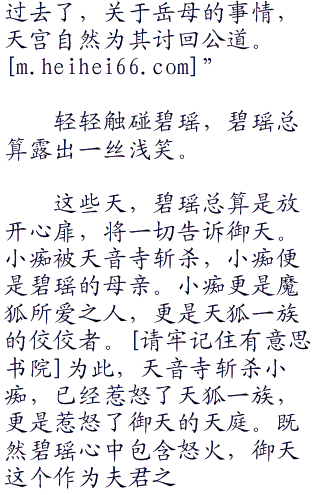 过去了，关于岳母的事情，
天宫自然为其讨回公道。
[m.heihei66.com]”
轻轻触碰碧瑶，碧瑶总
算露出一丝浅笑。
这些天，碧瑶总算是放
开心扉，将一切告诉御天。
小痴被天音寺斩杀，小痴便
是碧瑶的母亲。小痴更是魔
狐所爱之人，更是天狐一族
的佼佼者。[请牢记住有意思
书院]为此，天音寺斩杀小
痴，已经惹怒了天狐一族，
更是惹怒了御天的天庭。既
然碧瑶心中包含怒火，御天
这个作为夫君之